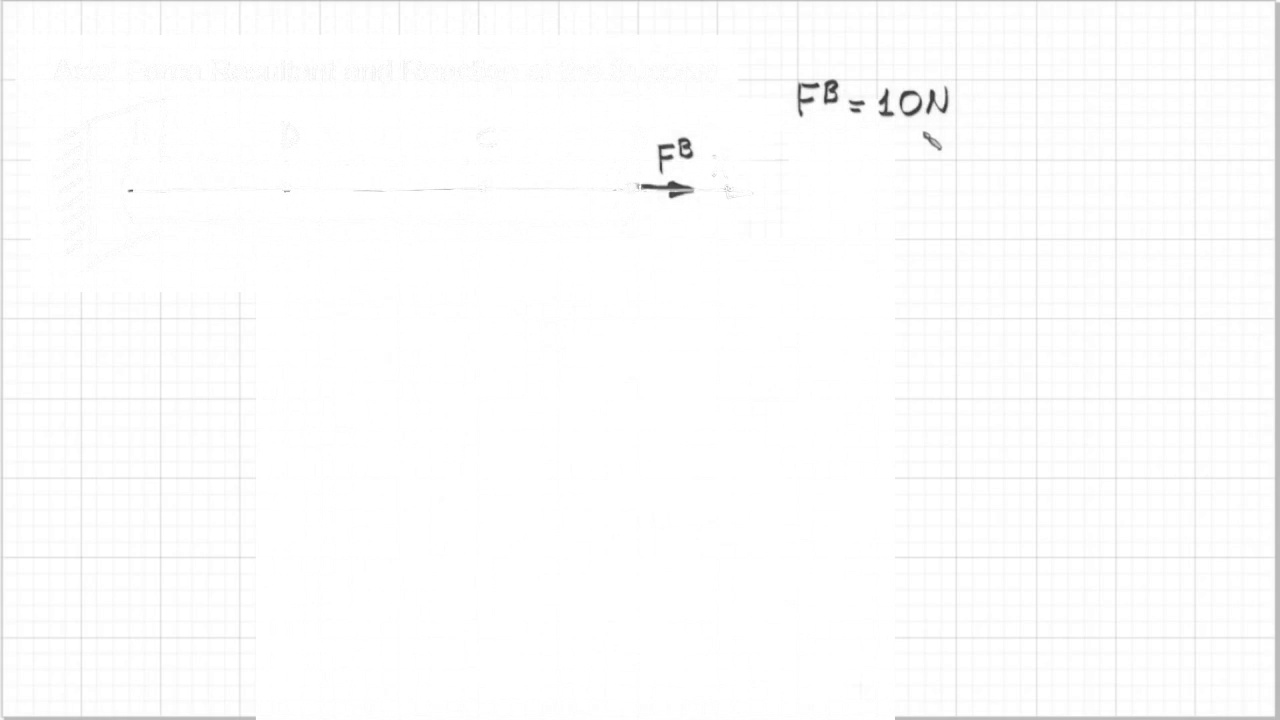 Axial Force Resultant and Reaction at the Supports
F^B = 10N
D
C
F^B